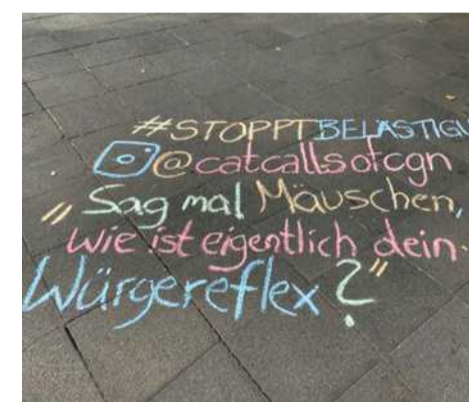 #STOPPTBELÄSTIGU
@catcallsofcgn
"Sag mal Mäuschen,
wie ist eigentlich dein
Würgereflex?"